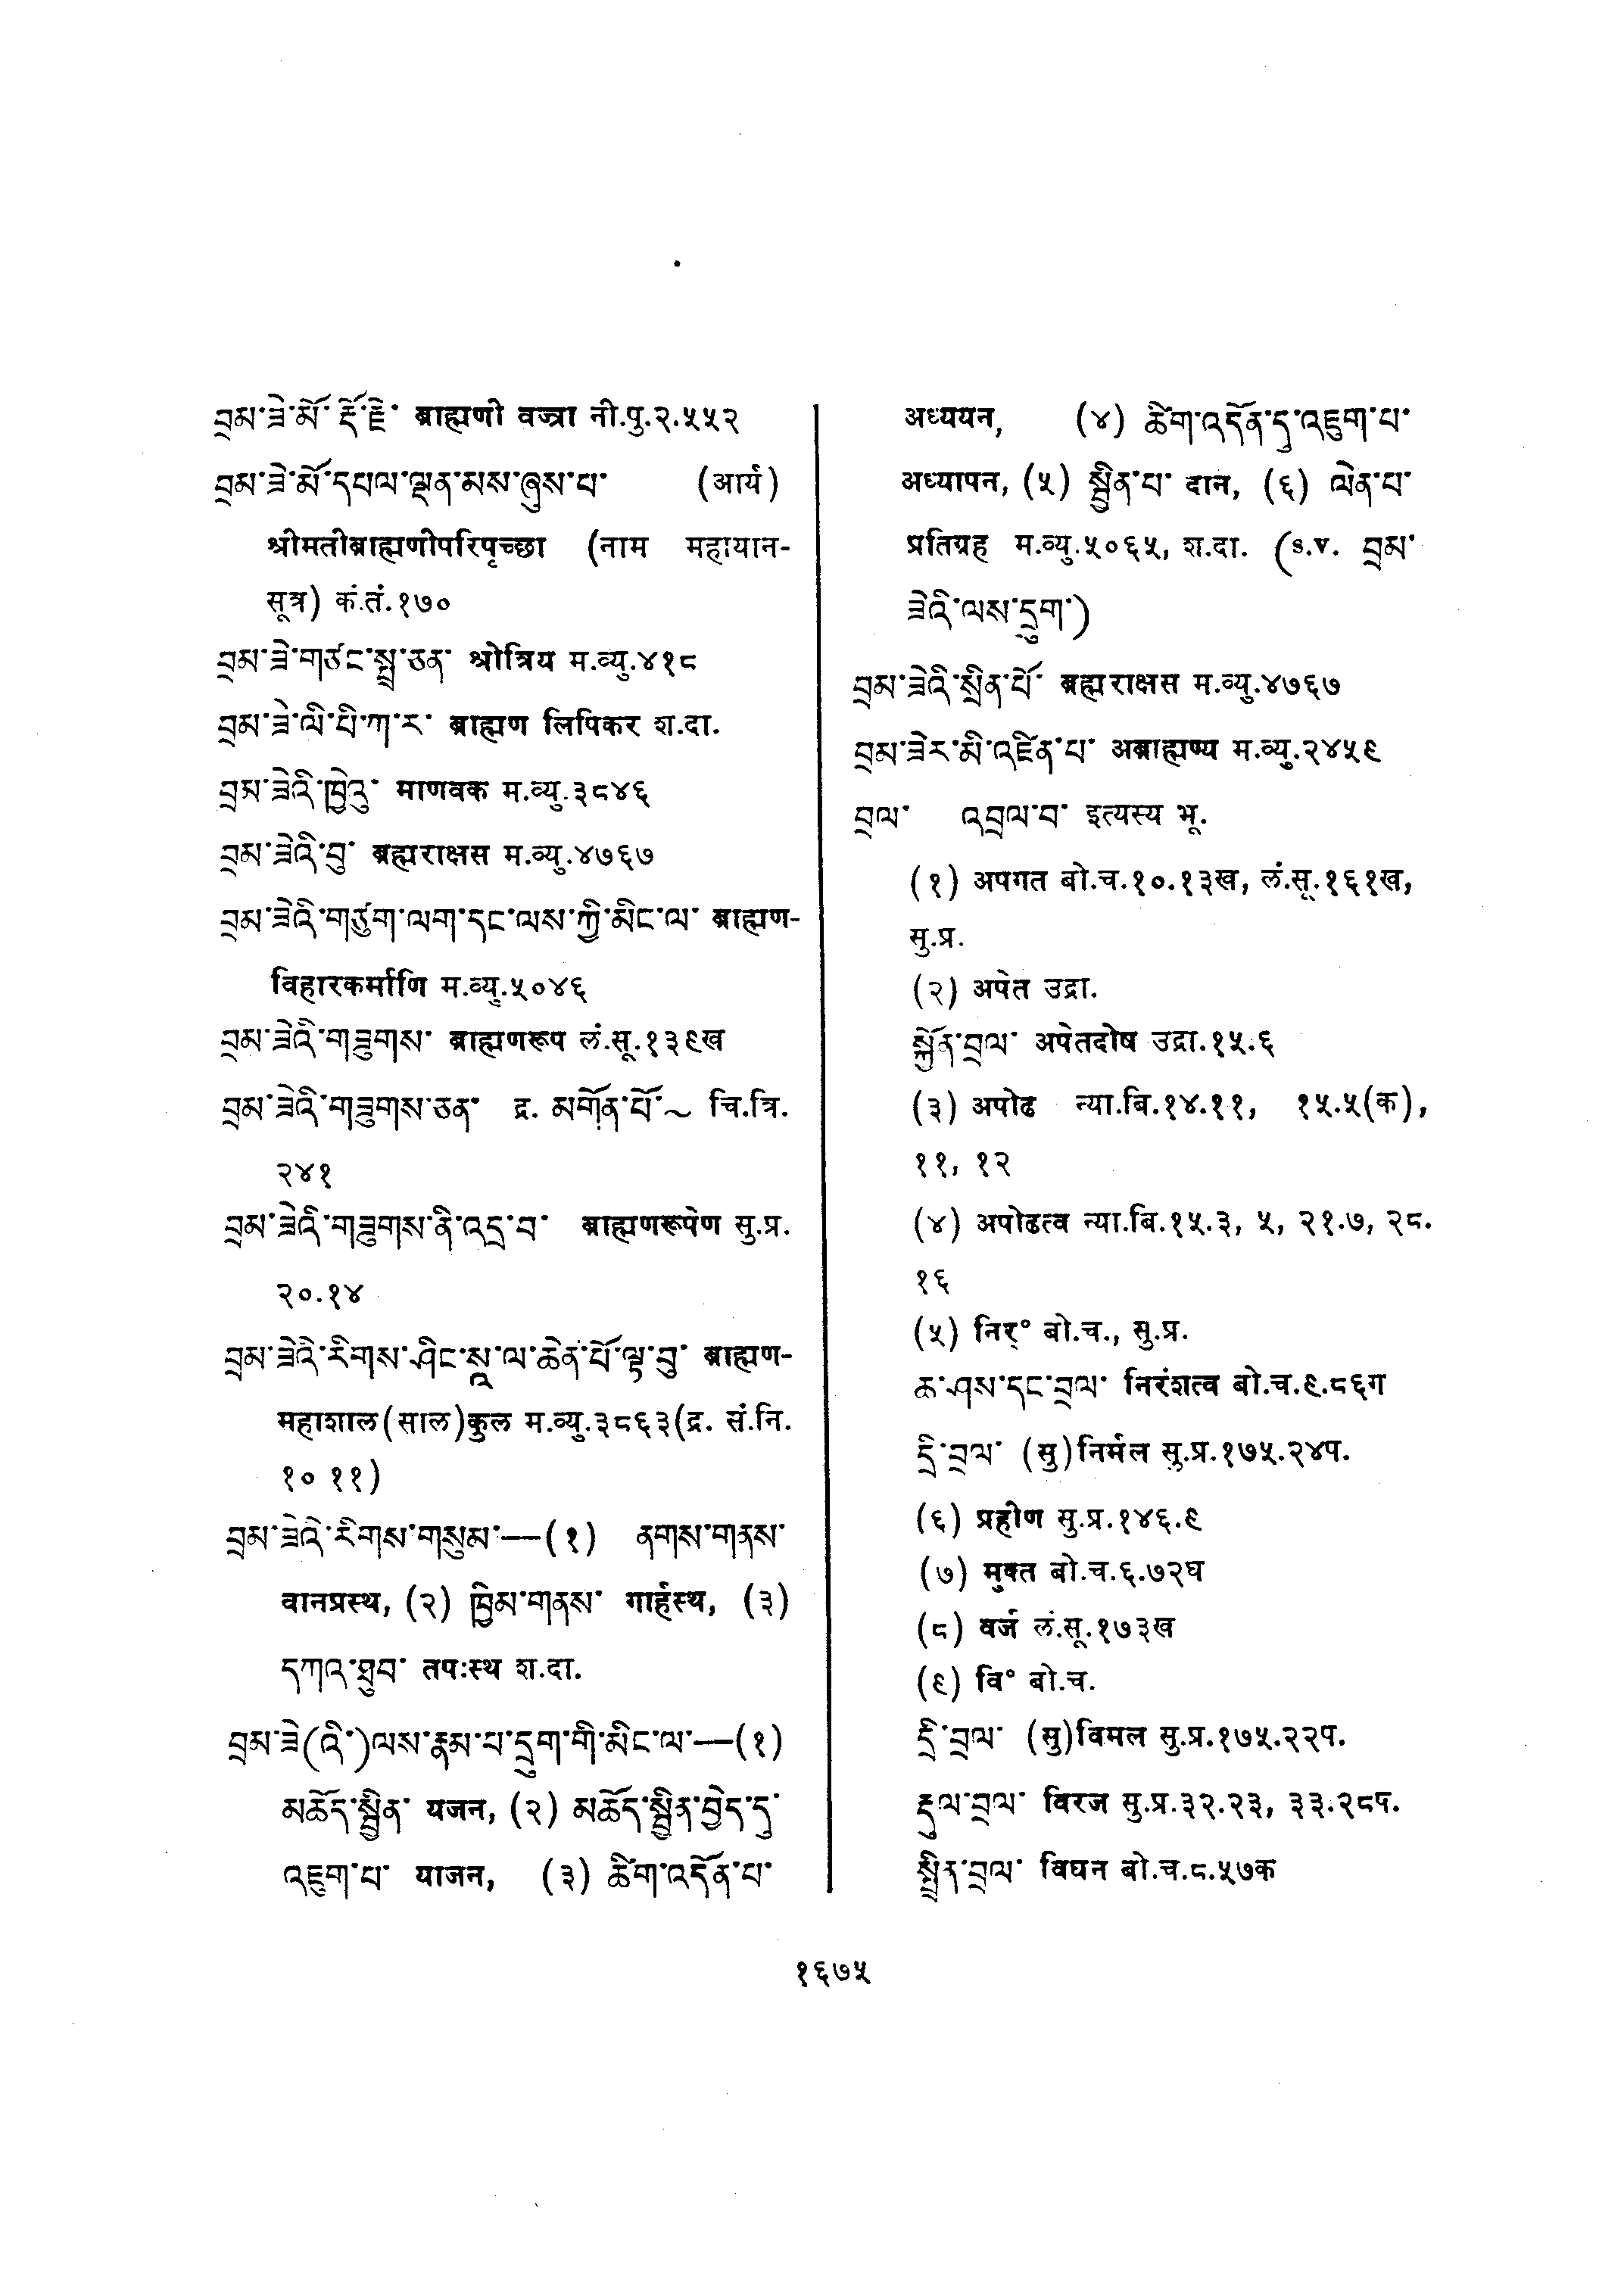 བྲམ་ཟེ་མོ་ རྡོ་རྗེ་ ब्राह्मणी वज्रा नी.पु.२.५५२
བྲམ་ཟེ་མོ་དཔལ་ལྡན་མས་ཞུས་པ་ (आर्य)
श्रीमतीब्राह्मणीपरिपृच्छा (नाम महायान-
सूत्र) कं.तं.१७०
བྲམ་ཟེ་གཙང་སྦྲ་ཅན་ श्रोत्रिय म.व्यु.४१८
བྲམ་ཟེ་ལི་པི་ཀ་ར་ ब्राह्मण लिपिकर श.दा.
བྲམ་ཟེའི་ཁྱེའུ་ माणवक म.व्यु.३८४६
བྲམ་ཟེའི་བུ་ ब्रह्मराक्षस म.व्यु.४७६७
བྲམ་ཟེའི་གཙུག་ལག་དང་ལས་ཀྱི་མིང་ལ་ ब्राह्मण-
विहारकर्माणि म.व्यु.५०४६
བྲམ་ཟེའི་གཟུགས་ ब्राह्मणरूप लं.सू.१३९ख
བྲམ་ཟེའི་གཟུགས་ཅན་ द्र. མགོན་པོ་~ चि.त्रि.
२४१
བྲམ་ཟེའི་གཟུགས་ནི་འདྲ་བ་ ब्राह्मणरूपेण सु.प्र.
२०.१४
བྲམ་ཟེའི་རིགས་ཤིང་སཱ་ལ་ཆེན་པོ་ལྟ་བུ་ ब्राह्मण-
महाशाल(साल)कुल म.व्यु.३८६३(द्र. सं.नि.
१० ११)
བྲམ་ཟེའི་རིགས་གསུམ་—(१) ནགས་གནས་
वानप्रस्थ, (२) ཁྱིམ་གནས་ गार्हस्थ, (३)
དཀའ་ཐུབ་ तपःस्थ श.दा.
བྲམ་ཟེ(འི་)ལས་རྣམ་པ་དྲུག་གི་མིང་ལ་—(१)
མཆོད་སྦྱིན་ यजन, (२) མཆོད་སྦྱིན་བྱེད་དུ་
འཇུག་པ་ याजन, (३) ཚིག་འདོན་པ་
अध्ययन, (४) ཚིག་འདོན་དུ་འཇུག་པ་
अध्यापन, (५) སྦྱིན་པ་ दान, (६) ལེན་པ་
प्रतिग्रह म.व्यु.५०६५, श.दा. (s.v. བྲམ་
ཟེའི་ལས་དྲུག་)
བྲམ་ཟེའི་སྲིན་པོ་ ब्रह्मराक्षस म.व्यु.४७६७
བྲམ་ཟེར་མི་འཛིན་པ་ अब्राह्मण्य म.व्यु.२४५९
བྲལ་ འབྲལ་བ་ इत्यस्य भू.
(१) अपगत बो.च.१०.१३ख, लं.सू.१६१ख,
सु.प्र.
(२) अपेत उद्रा.
སྐྱོན་བྲལ་ अपेतदोष उद्रा.१५.६
(३) अपोढ न्या.बि.१४.११, १५.५(क),
११, १२
(४) अपोढत्व न्या.बि.१५.३, ५, २१.७, २८.
१६
(५) निर्° बो.च., सु.प्र.
ཆ་ཤས་དང་བྲལ་ निरंशत्व बो.च.९.८६ग
དྲི་བྲལ་ (सु)निर्मल सु.प्र.१७५.२४प.
(६) प्रहीण सु.प्र.१४६.९
(७) मुक्त बो.च.६.७२घ
(८) वर्ज लं.सू.१७३ख
(९) वि° बो.च.
དྲི་བྲལ་ (सु)विमल सु.प्र.१७५.२२प.
རྡུལ་བྲལ་ विरज सु.प्र.३२.२३, ३३.२८प.
སྤྲིན་བྲལ་ विघन बो.च.८.५७क
१६७५